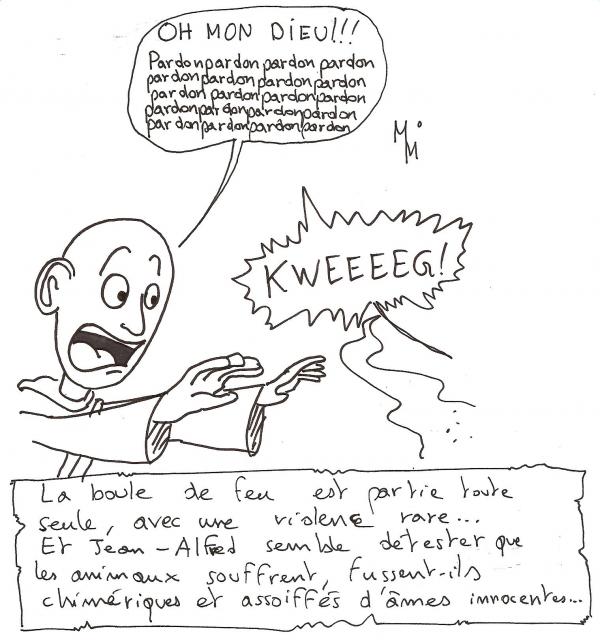 OH MON DIEU!!!
Pardonpardonpardon pardon
pardonpardonpardonpardon
pardonpardonpardonpardon
pardonpardonpardonpardon
pardonpardonpardonpardon
MM
KWEEEEG!
La boule de feu est partie toute
seule, avec une violence rare...
Et Jean-Alfred semble détester que
les animaux souffrent, fussent-ils
chimériques et assoiffés d'âmes innocentes...